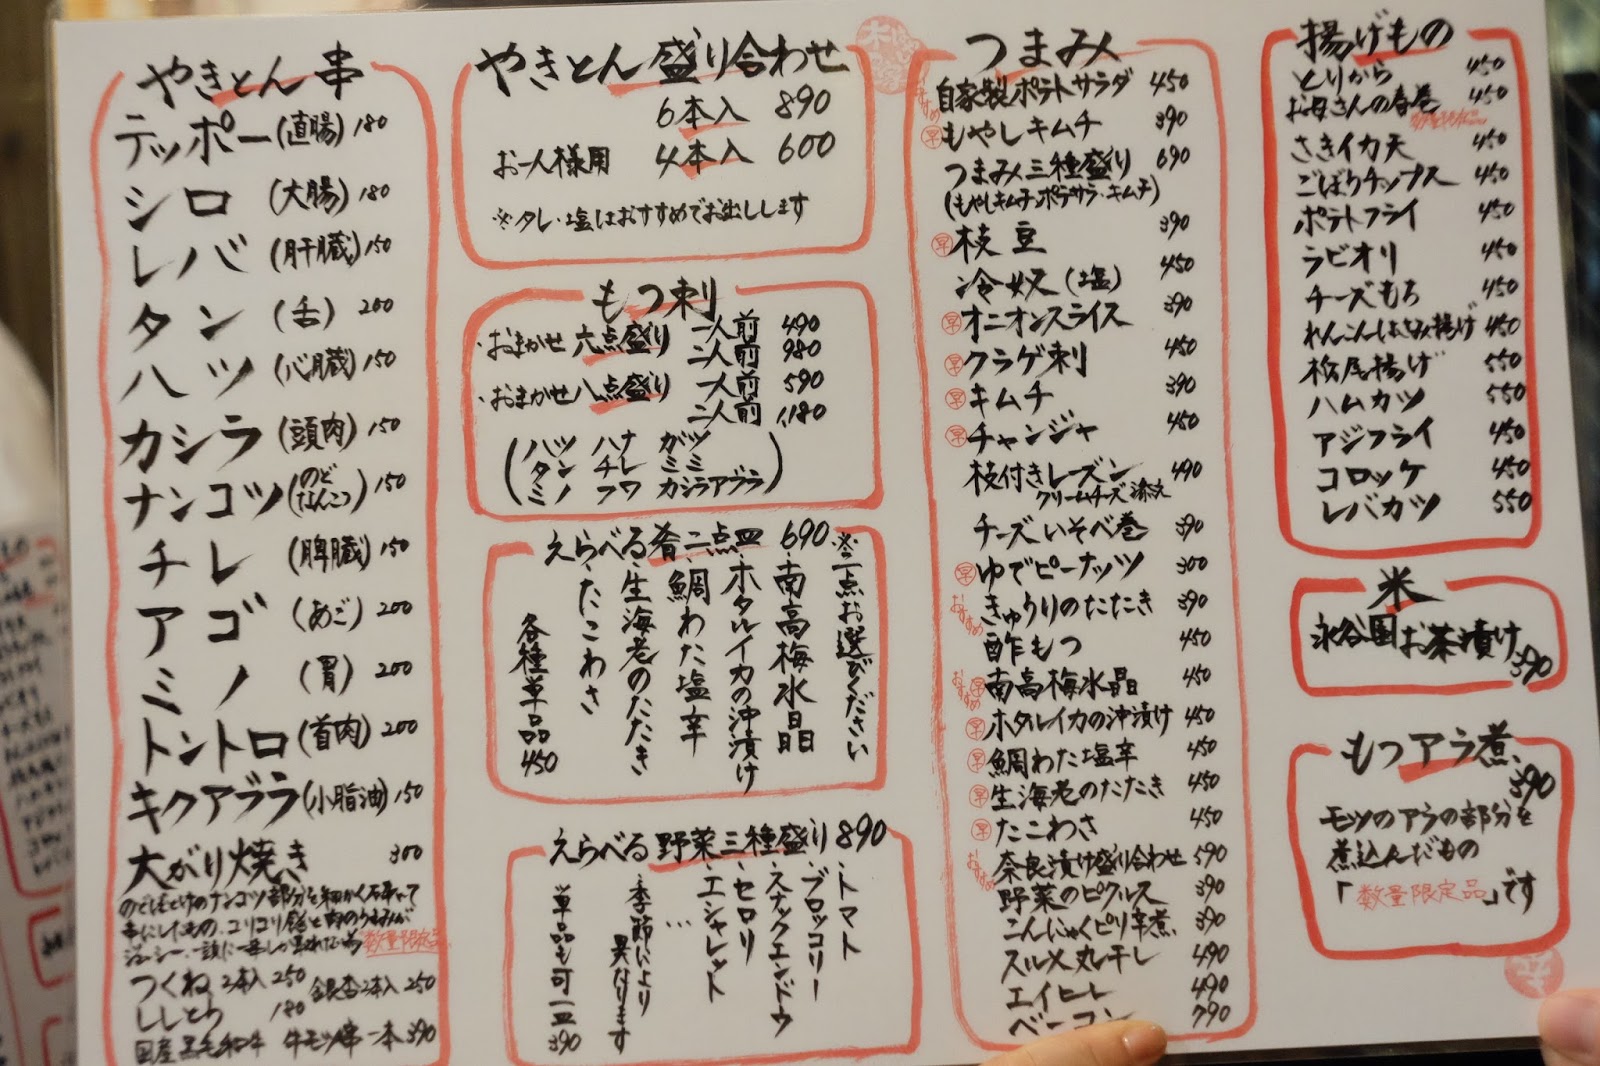 やきとん串
テッポー(直腸) 180
シロ(大腸) 180
レバ(肝臓) 150
タン(舌) 200
ハツ(心臓) 150
カシラ(頭肉) 150
ナンコツ(のどなんこつ) 150
チレ(脾臓) 150
アゴ(あご) 200
ミノ(胃) 200
トントロ(首肉) 200
キクアブラ(小脂油) 150
大がり焼き 300
串にしたもの、コリコリ感と肉のうまみが
数量限定品
つくね 2本入 250 銀杏2本入 250
ししとう 180
国産黒毛和牛 牛モツ串一本 390
やきとん盛り合わせ
6本入 890
お一人様用 4本入 600
※タレ・塩はおすすめでお出しします
もつ刺
・おまかせ六点盛り 一人前 490
二人前 980
・おまかせ八点盛り 一人前 590
二人前 1,180
(ハツ ハナ ガツ
タン チレ ミミ
ミノ フワ カシラアブラ)
えらべる肴二点皿 690
※二点お選びください
・南高梅水晶
・ホタルイカの沖漬け
・鯛わた塩辛
・生海老のたたき
・たこわさ
各種単品 450
えらべる野菜三種盛り 890
・トマト
・ブロッコリー
・スナックエンドウ
・セロリ
・エシャレット
…
・季節により
異なります
単品も可 一皿 390
つまみ
おすすめ 自家製ポテトサラダ 450
早 もやしキムチ 390
つまみ三種盛り 690
(もやしキムチ・ポテサラ・キムチ)
早 枝豆 390
冷奴(塩) 450
早 オニオンスライス 390
早 クラゲ刺 450
早 キムチ 390
早 チャンジャ 450
枝付きレーズン 490
クリームチーズ添え
チーズいそべ巻 390
早 ゆでピーナッツ 300
おすすめ きゅうりのたたき 390
酢もつ 450
おすすめ 早 南高梅水晶 450
早 ホタルイカの沖漬け 450
早 鯛わた塩辛 450
早 生海老のたたき 450
早 たこわさ 450
おすすめ 奈良漬け盛り合わせ 590
野菜のピクルス 390
こんにゃくピリ辛煮 390
スルメ丸干し 490
エイヒレ 490
ベーコン 790
揚げもの
とりから 450
お母さんの春巻 450
数量限定品
さきイカ天 450
ごぼうチップス 450
ポテトフライ 450
ラビオリ 450
チーズもち 450
れんこんはさみ揚げ 450
栃尾揚げ 550
ハムカツ 550
アジフライ 450
コロッケ 450
レバカツ 550
米
永谷園お茶漬け 390
もつアラ煮 390
モツのアラの部分を
煮込んだもの
「数量限定品」です